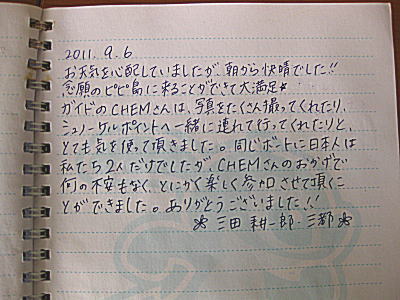 2011. 9. 6
お天気を心配していましたが、朝から快晴でした!!
念願のピピ島に来ることができて大満足☆
ガイドのCHEMさんは、写真をたくさん撮ってくれたり、
シュノーケルポイントへ一緒に連れて行ってくれたりと、
とても気を使って頂きました。同じボートに日本人は
私たち2人だけでしたが、CHEMさんのおかげで
何の不安もなく、とにかく楽しく参加させて頂くこ
とができました。ありがとうございました!!
三田 耕一郎・三都